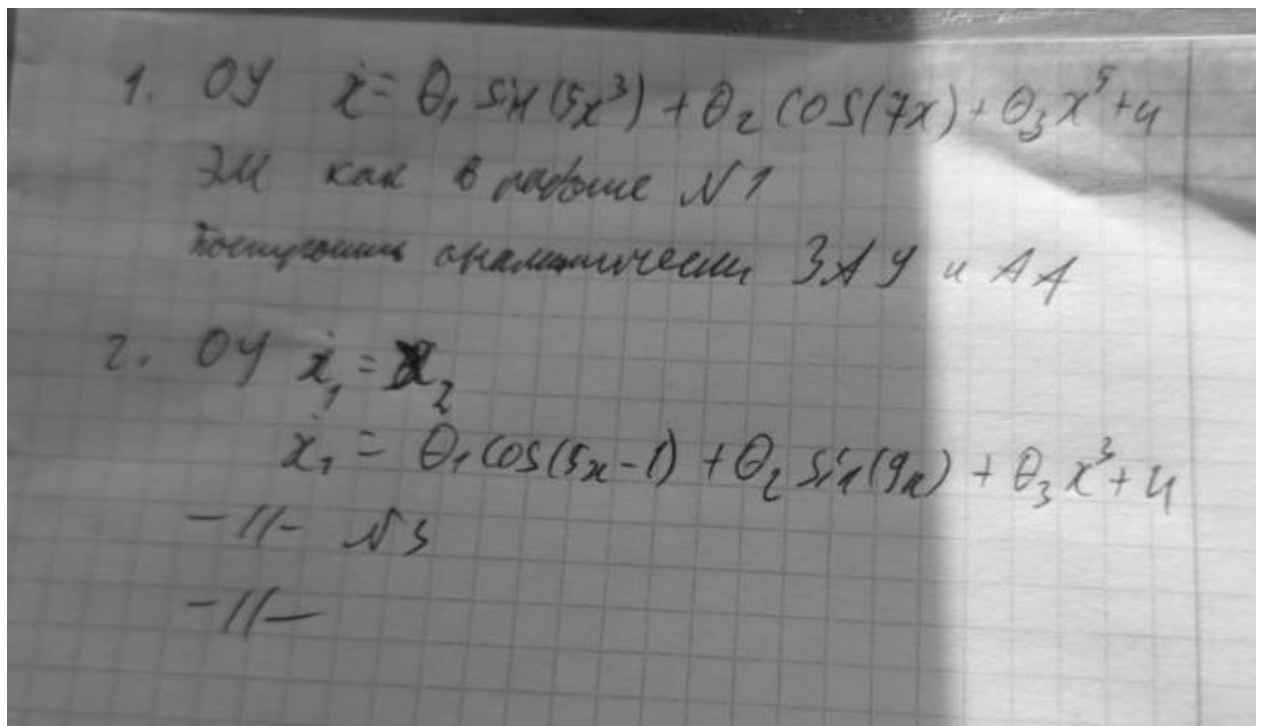 1. ОУ ẋ = θ₁ sin(5x³) + θ₂ cos(7x) + θ₃x⁵ + u
ЭМ как в работе N 1
Построить аналитически ЗАУ и АА
2. ОУ ẋ₁ = x₂
ẋ₁ = θ₁cos(5x-1) + θ₂ sin(9x) + θ₃x³ + u
-//- N3
-//-